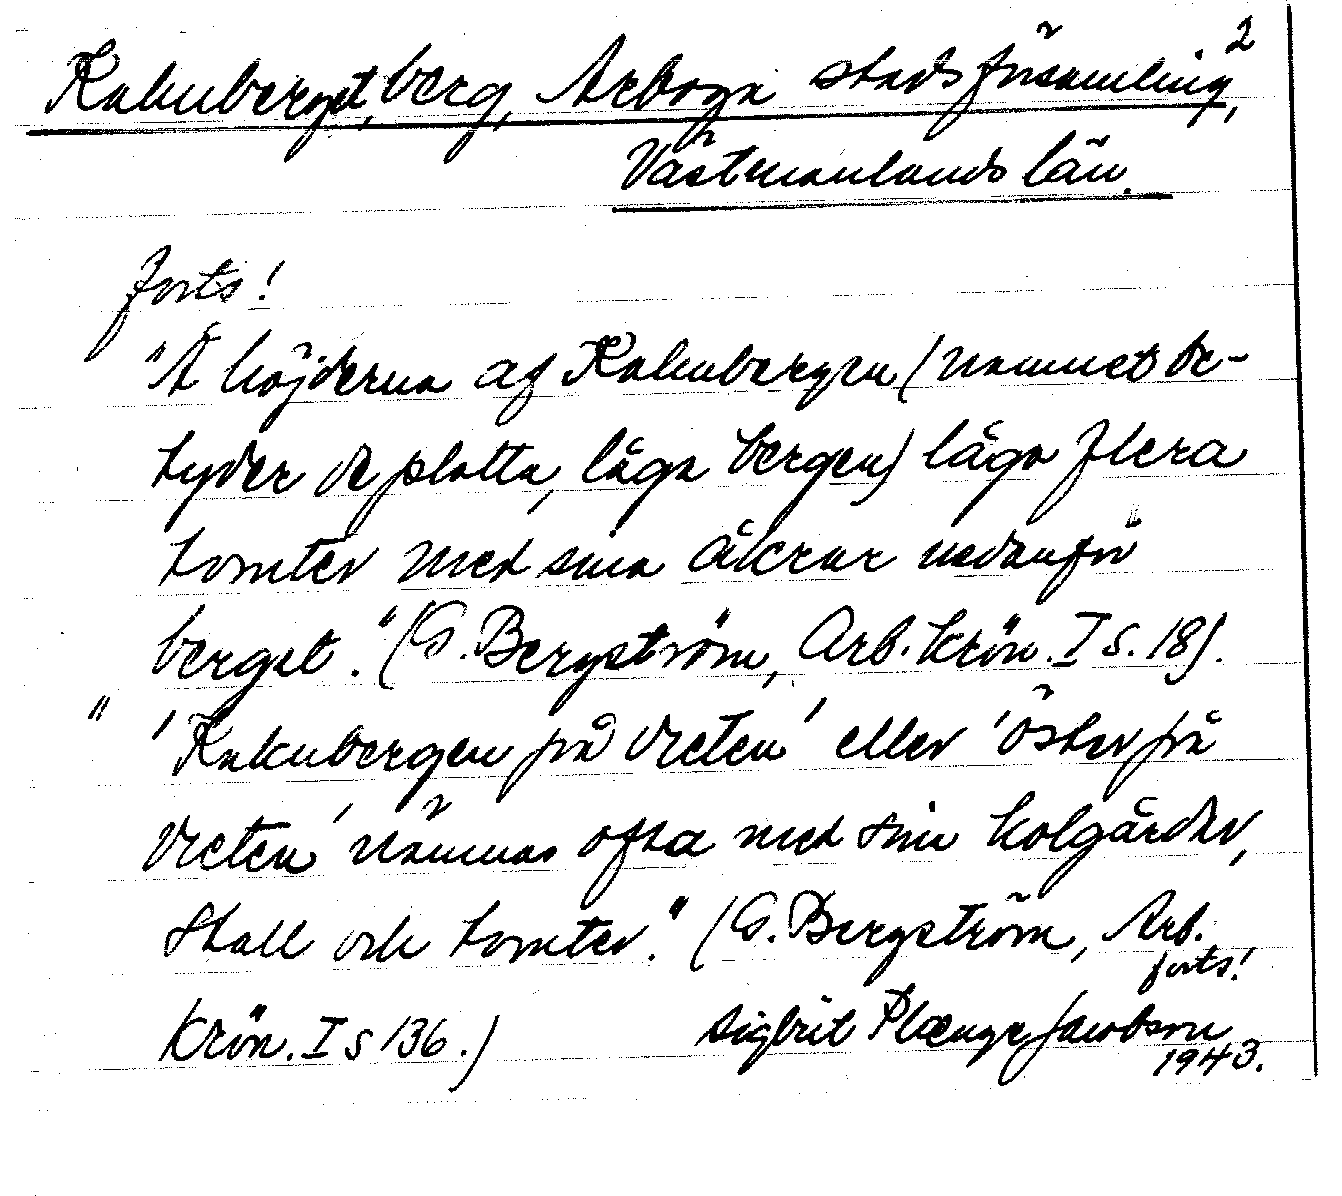 2
Kakuberget, berg, Arboga stadsförsamling,
Västmanlands län.
forts!
"Å höjderna af Kakubergen (namnet be-
tyder de platta, låga bergen) låga flera
tomter med sina åkrar nedanför
berget." (G. Bergström, Arb. Krön. I s. 18).
" 'Kakubergen på vreten' eller 'Öster på
vreten' nämnas ofta med sin kolgårdar,
stall och tomter." (G. Bergström, Arb.
forts!
Krön. I s 136.) Sigbrit Plænge Jacobson
1943.